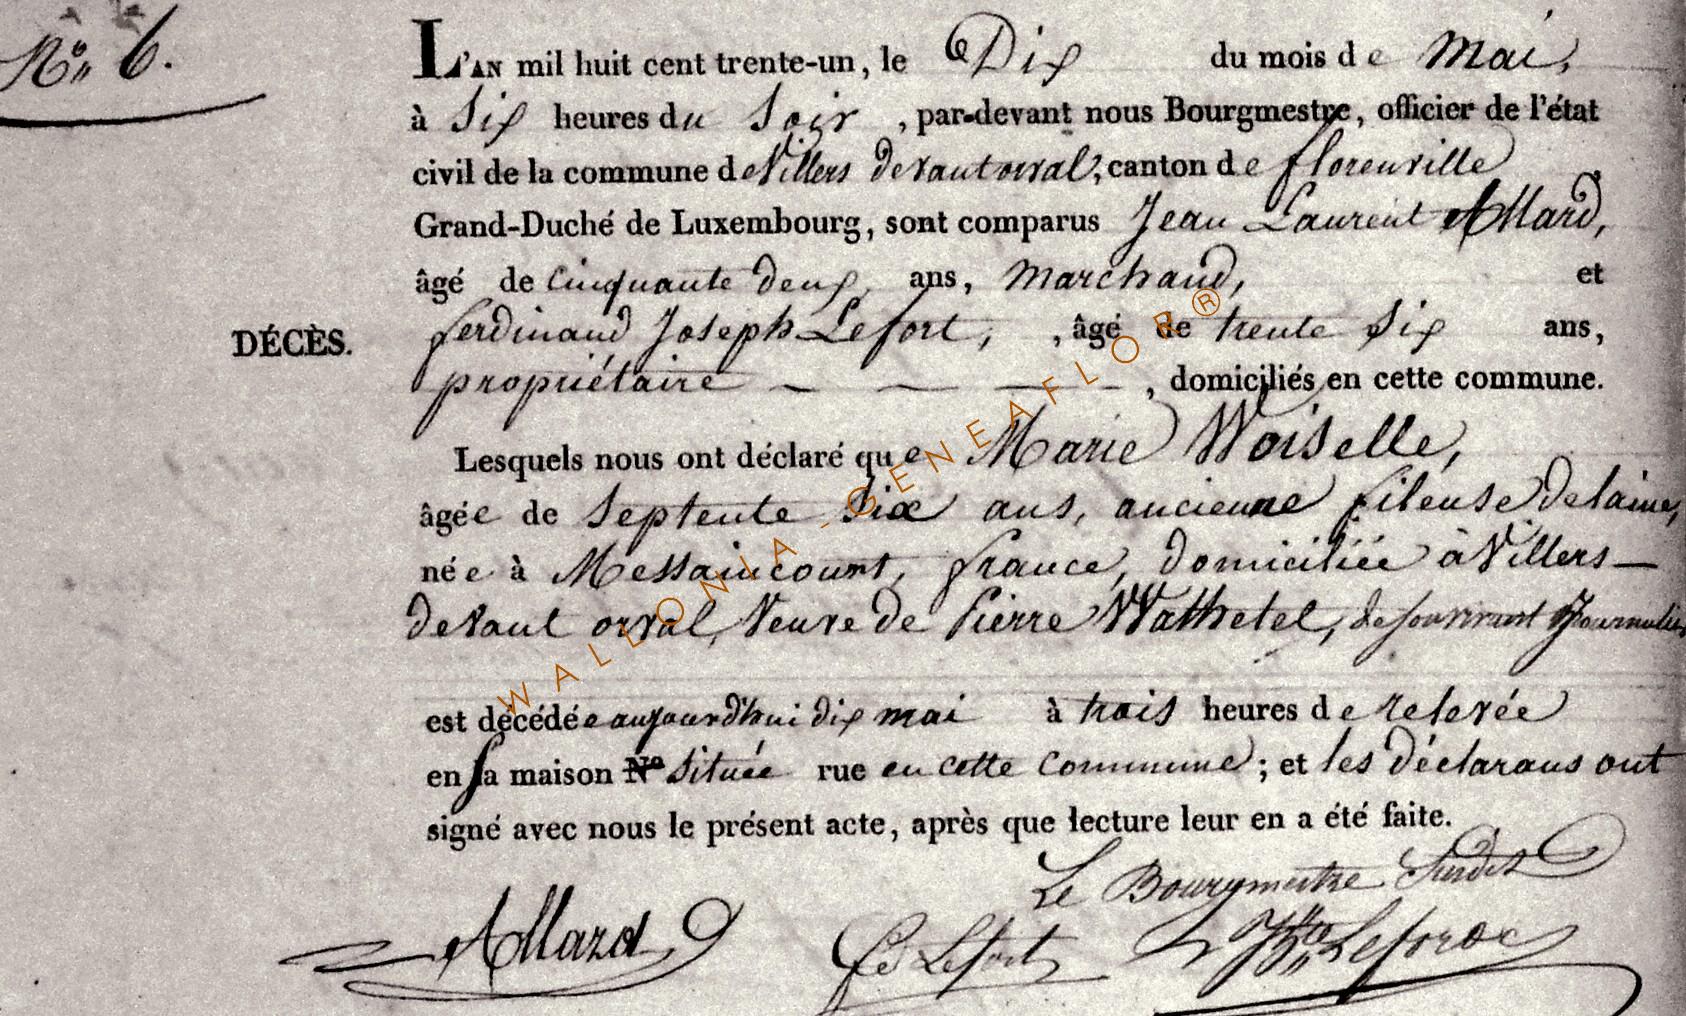 N° 6.
L'AN mil huit cent trente-un, le Dix du mois de Mai,
à Six heures du Soir, par-devant nous Bourgmestre, officier de l'état
civil de la commune de Villers devant orval, canton de florenville
Grand-Duché de Luxembourg, sont comparus Jean Laurent Allard,
âgé de cinquante deux ans, Marchand, et
DÉCÈS.
ferdinand Joseph Lefort, , âgé de trente Six ans,
propriétaire — — — — , domiciliés en cette commune.
Lesquels nous ont déclaré que Marie Woiselle,
âgée de Septente Six ans, ancienne fileuse de laine,
née à Messaincourt, france, domiciliée à Villers—
devant orval, Veuve de Pierre Wathelet, de Son vivant Journalier
est décédée aujourd'hui dix mai à trois heures de relevée
en sa maison N° Située rue en cette Commune ; et les déclarans ont
signé avec nous le présent acte, après que lecture leur en a été faite.
Le Bourgmestre Susdit
Allard
Lefort
WALLONIA - GENEAFLOR®